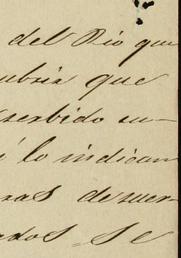 del Rio que
ubrir que
cerbido en-
i lo indican
ras de suer-
ados_ se